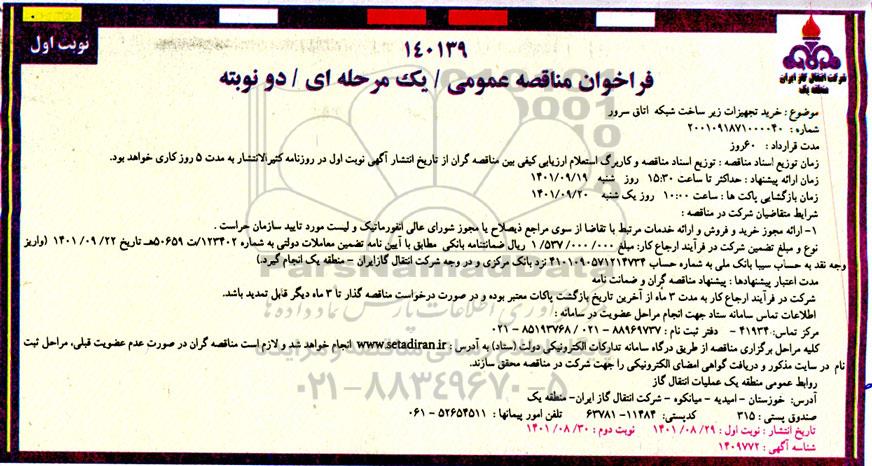 نوبت اول
شرکت انتقال گاز ایران
منطقه یک
۱۴۰۱۳۹
فراخوان مناقصه عمومی / یک مرحله ای / دو نوبته
موضوع : خرید تجهیزات زیر ساخت شبکه اتاق سرور
شماره : ۲۰۰۱۰۹۱۸۷۱۰۰۰۰۴۰
مدت قرارداد : ۶۰روز
زمان توزیع اسناد مناقصه : توزیع اسناد مناقصه و کاربرگ استعلام ارزیابی کیفی بین مناقصه گران از تاریخ انتشار آگهی نوبت اول در روزنامه کثیرالانتشار به مدت ۵ روز کاری خواهد بود.
زمان ارائه پیشنهاد : حداکثر تا ساعت ۱۵:۳۰ روز شنبه ۱۴۰۱/۰۹/۱۹
زمان بازگشایی پاکت ها : ساعت ۱۰:۰۰ روز یک شنبه ۱۴۰۱/۰۹/۲۰
شرایط متقاضیان شرکت در مناقصه :
۱- ارائه مجوز خرید و فروش و ارائه خدمات مرتبط با تقاضا از سوی مراجع ذیصلاح یا مجوز شورای عالی انفورماتیک و لیست مورد تایید سازمان حراست .
نوع و مبلغ تضمین شرکت در فرآیند ارجاع کار: مبلغ ۱/۵۳۷/۰۰۰/۰۰۰ ریال ضمانتنامه بانکی مطابق با آیین نامه تضمین معاملات دولتی به شماره ۱۲۳۴۰۲/ت ۵۰۶۵۹هـ تاریخ ۱۴۰۱/۰۹/۲۲ (واریز
وجه نقد به حساب سیبا بانک ملی به شماره حساب ۴۱۰۱۰۹۰۵۷۱۲۱۴۷۳۴ نزد بانک مرکزی و در وجه شرکت انتقال گازایران - منطقه یک انجام گیرد.)
مدت اعتبار پیشنهادها : پیشنهاد مناقصه گران و ضمانت نامه
شرکت در فرآیند ارجاع کار به مدت ۳ ماه از آخرین تاریخ بازگشت پاکات معتبر بوده و در صورت درخواست مناقصه گذار تا ۳ ماه دیگر قابل تمدید باشد.
اطلاعات تماس سامانه ستاد جهت انجام مراحل عضویت در سامانه :
مرکز تماس: ۴۱۹۳۴ - دفتر ثبت نام : ۸۸۹۶۹۷۳۷ - ۰۲۱ / ۸۵۱۹۳۷۶۸ - ۰۲۱
کلیه مراحل برگزاری مناقصه از طریق درگاه سامانه تدارکات الکترونیکی دولت (ستاد) به آدرس : www.setadiran.ir انجام خواهد شد و لازم است مناقصه گران در صورت عدم عضویت قبلی، مراحل ثبت
نام در سایت مذکور و دریافت گواهی امضای الکترونیکی را جهت شرکت در مناقصه محقق سازند.
روابط عمومی منطقه یک عملیات انتقال گاز
آدرس: خوزستان - امیدیه - میانکوه - شرکت انتقال گاز ایران- منطقه یک
صندوق پستی : ۳۱۵ کدپستی: ۱۱۴۸۴- ۶۳۷۸۱ تلفن امور پیمانها : ۵۲۶۵۴۵۱۱ - ۰۶۱
تاریخ انتشار : نوبت اول : ۲۹/ ۰۸/ ۱۴۰۱ نوبت دوم : ۳۰/ ۰۸/ ۱۴۰۱
شناسه آگهی : ۱۴۰۹۷۷۲
ParsNamadData
۰۲۱-۸۸۳۴۹۶۷۰-۵